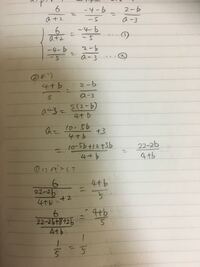 6/(a+2) = (-4-b)/-5 = (2-b)/(a-3)
{ 6/(a+2) = (-4-b)/-5 ...①
(-4-b)/-5 = (2-b)/(a-3) ...②
(4+b)/5 = (2-b)/(a-3)
a-3 = 5(2-b)/(4+b)
a = (10-5b)/(4+b) + 3
(10-5b+12+3b)/(4+b) = (22-2b)/(4+b)
6/((22-2b)/(4+b) + 2) = (4+b)/5
6/((22-2b+8+2b)/(4+b)) = (4+b)/5
1/5 = 1/5